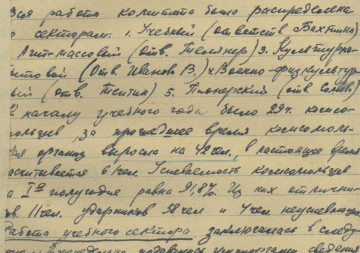 Вся работа комитета была распределена
секторам: 1. Учебный (ответств. Вахтина)
Агит-массовый (отв. ) 3. Культурно-
бытовой (Отв. Иванова В.) 4 Военно-физкультур
ный (отв. Тетин) 5. Пионерский (отв.
к началу учебного года было 29 ч. комсо-
мольцев, за прошедшее время комсомоль-
ская организ. выросла на 42 чел., в настоящее время
насчитывается чел. Успеваемость комсомольцев
за Iое полугодие равна 91,8% Из них отлични-
ков 11 чел. ударников 58 чел и 4 чел неуспевающ
Работа учебного сектора заключалась в следу
сведения